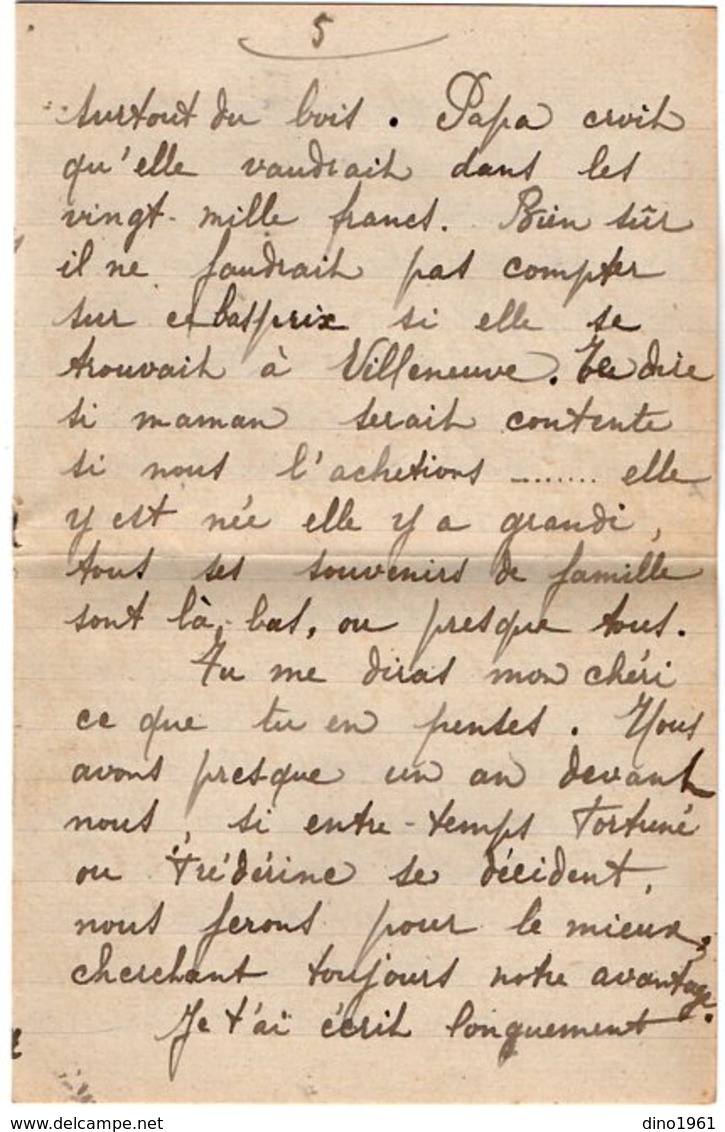 5
surtout du bois. Papa croit
qu'elle vaudrait dans les
vingt-mille francs. Bien sûr
il ne faudrait pas compter
sur ce bas prix si elle se
trouvait à Villeneuve. Te dire
si maman serait contente
si nous l'achetions ........ elle
y est née elle y a grandi,
tous ses souvenirs de famille
sont là-bas, ou presque tous.
Tu me diras mon chéri
ce que tu en penses. Nous
avons presque un an devant
nous, si entre-temps Fortuné
ou Frédérine se décident,
nous ferons pour le mieux,
cherchant toujours notre avantage.
Je t'ai écrit longuement
dino1961